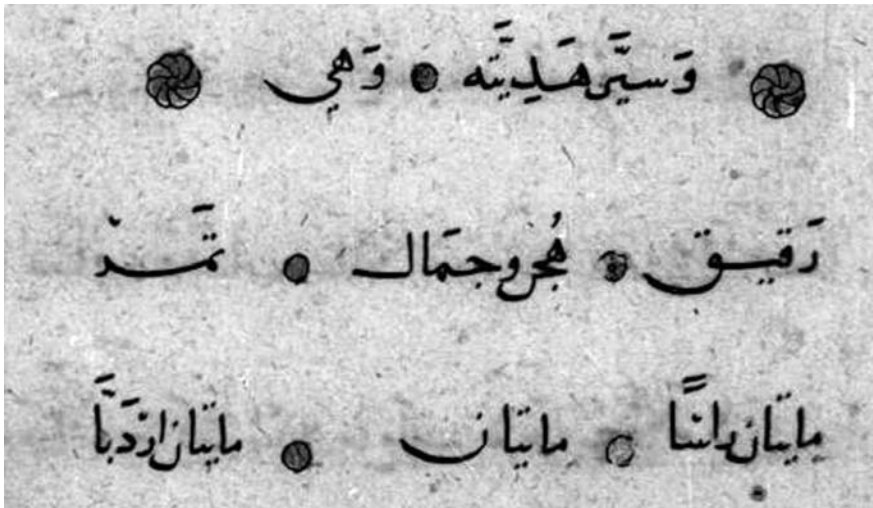 وَسيَّر هَدِيَّته وَهي
رَقيق هُجن وجمَال تَمرْ
مايتَان راسًا مايتَان مايتَان اردَبًّا